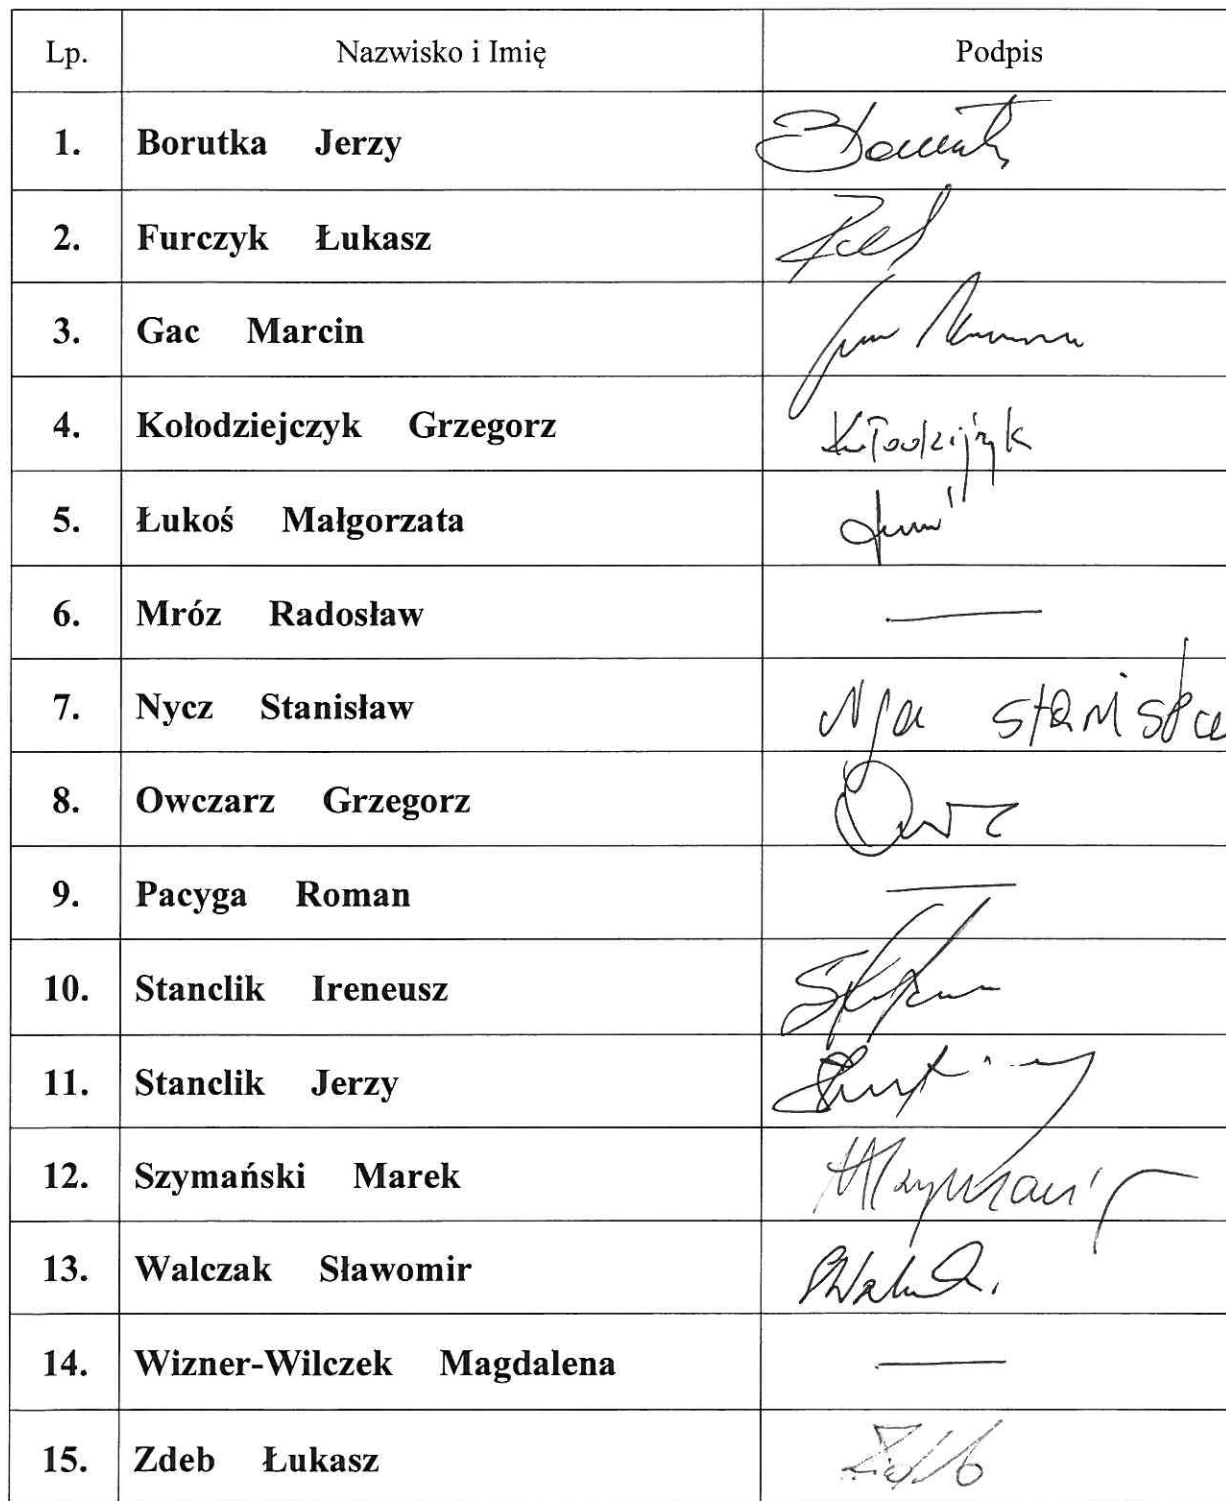 Lp. Nazwisko i Imię Podpis
1. Borutka Jerzy
2. Furczyk Łukasz
3. Gac Marcin
4. Kołodziejczyk Grzegorz
5. Łukoś Małgorzata
6. Mróz Radosław —
7. Nycz Stanisław
8. Owczarz Grzegorz
9. Pacyga Roman —
10. Stanclik Ireneusz
11. Stanclik Jerzy
12. Szymański Marek
13. Walczak Sławomir
14. Wizner-Wilczek Magdalena —
15. Zdeb Łukasz